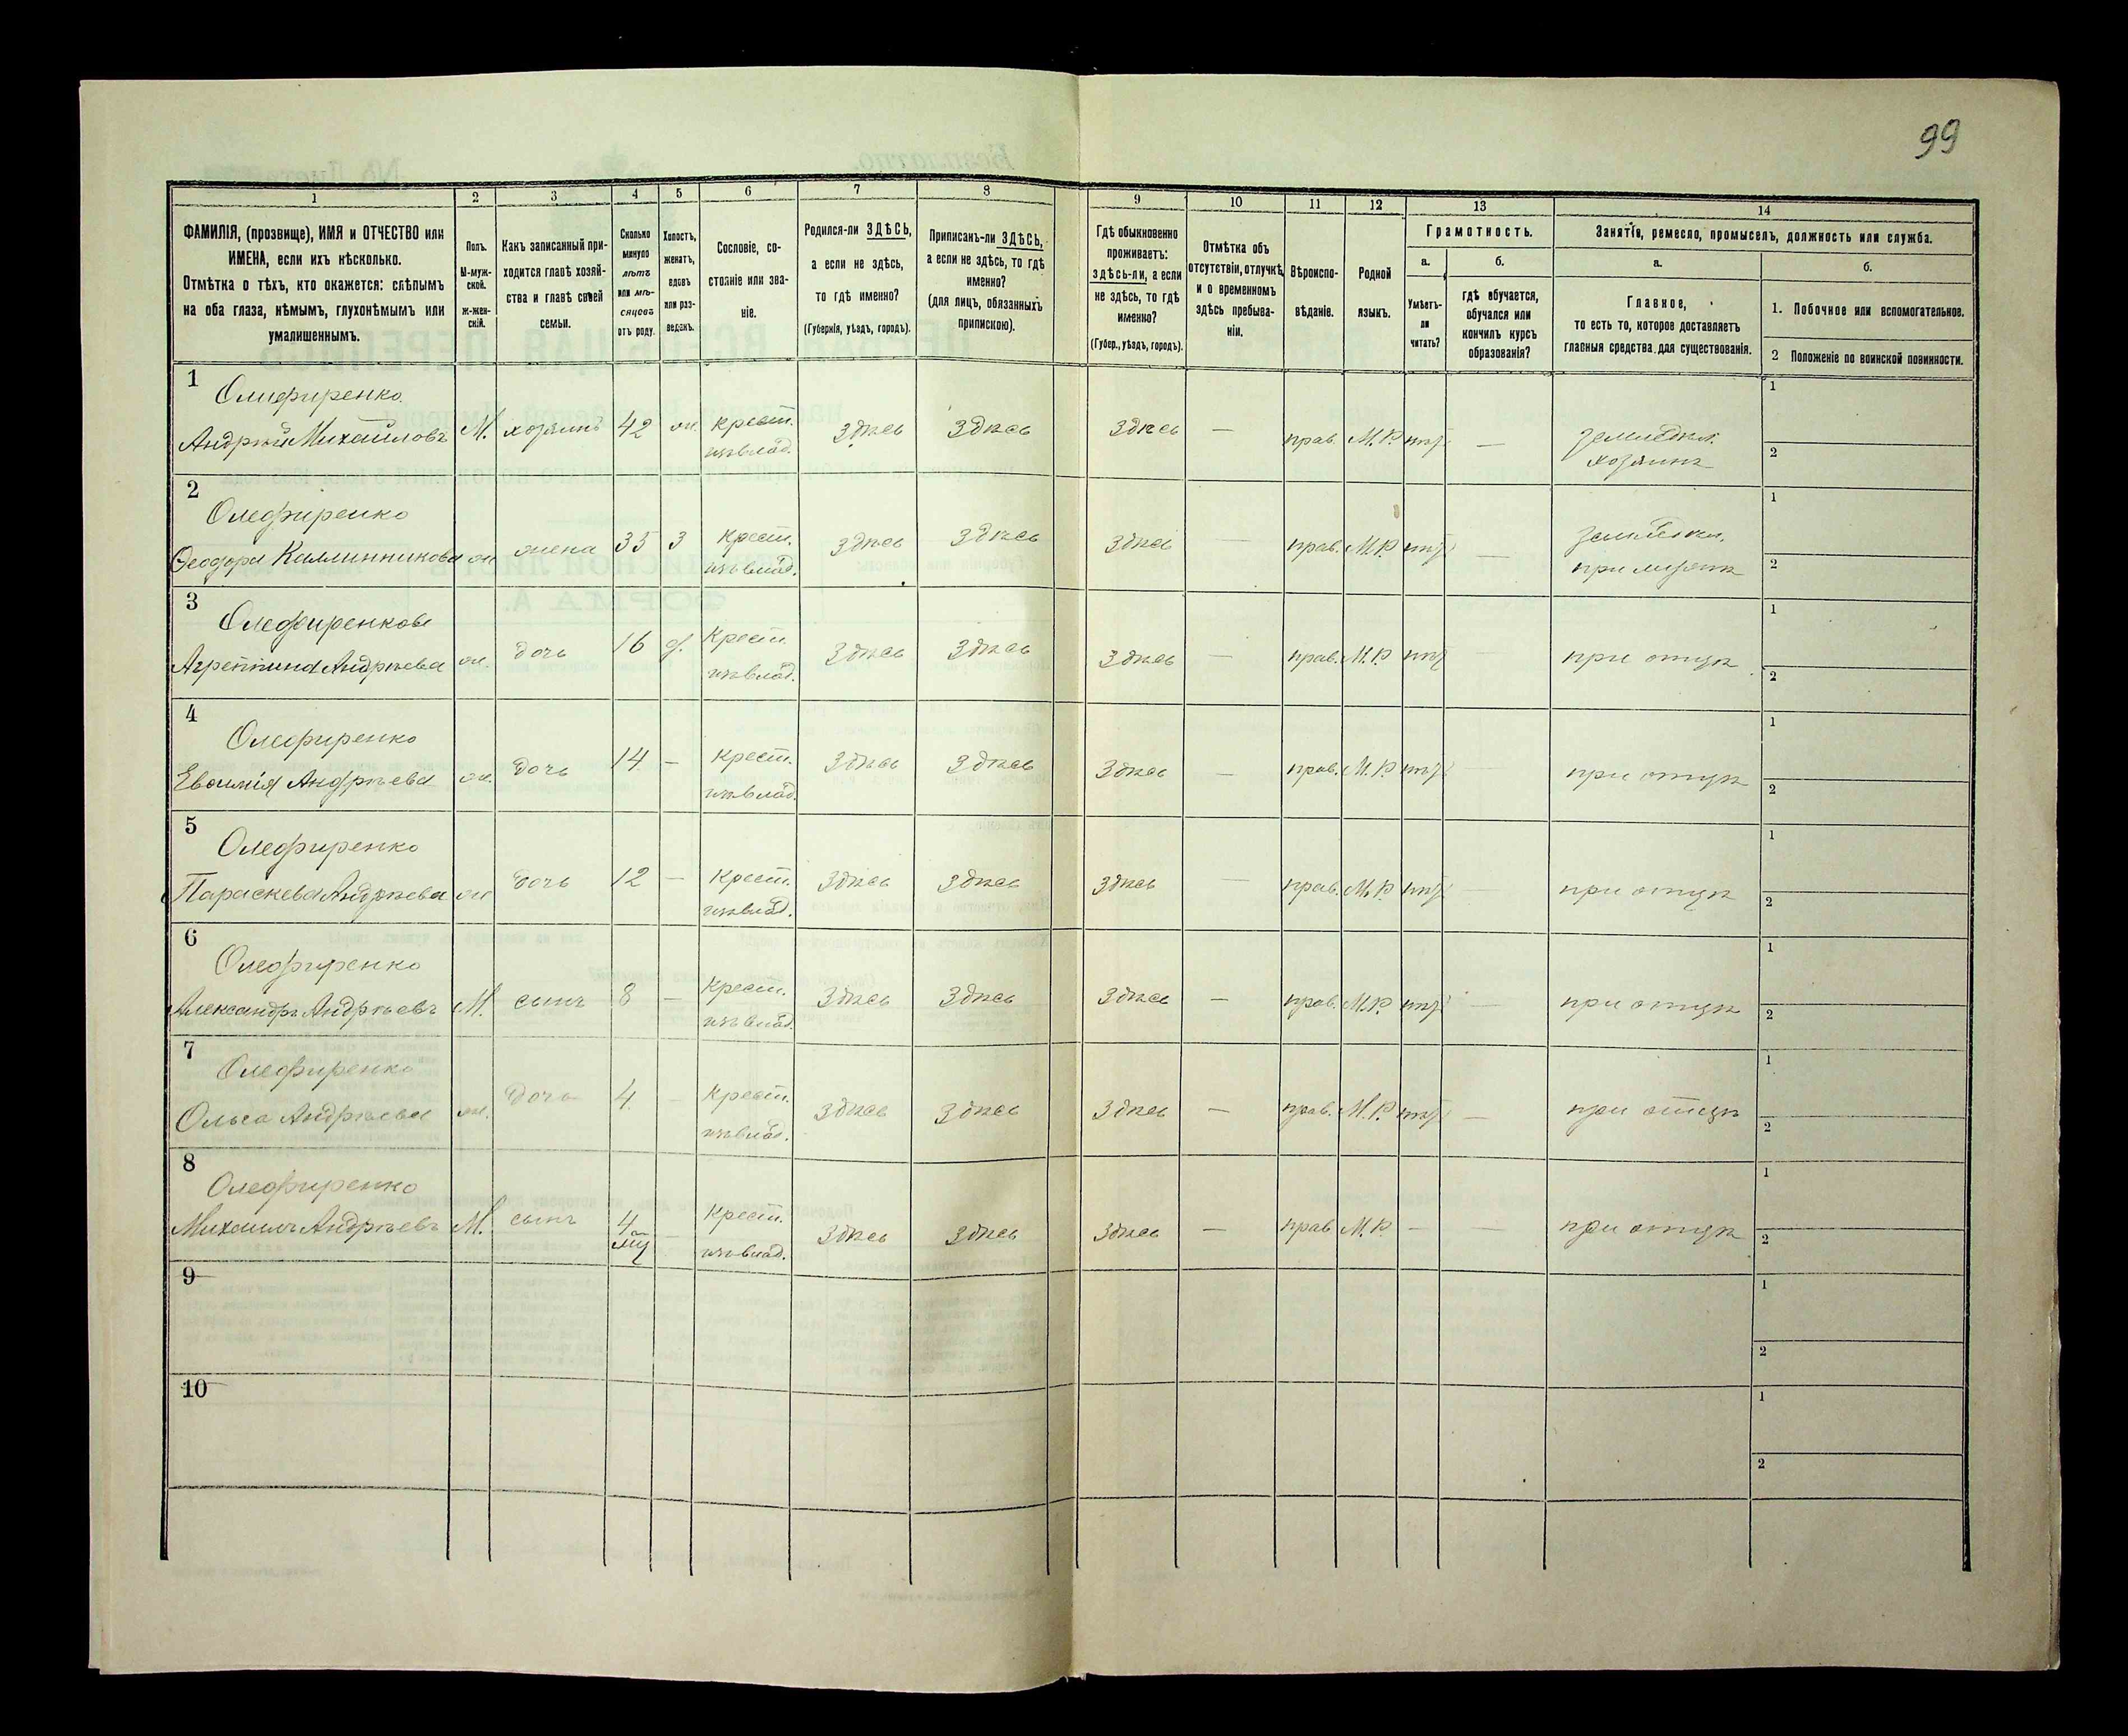 99
1 2 3 4 5 6 7 8 9 10 11 12 13 14
ФАМИЛІЯ, (прозвище), ИМЯ и ОТЧЕСТВО или
ИМЕНА, если ихъ нѣсколько.
Отмѣтка о тѣхъ, кто окажется: слѣпымъ
на оба глаза, нѣмымъ, глухонѣмымъ или
умалишеннымъ.
Полъ.
М-муж-
ской.
Ж-жен-
скій.
Какъ записанный при-
ходится главѣ хозяй-
ства и главѣ своей
семьи.
Сколько
минуло
лѣтъ
или мѣ-
сяцовъ
отъ роду.
Холостъ,
женатъ,
вдовъ
или раз-
веденъ.
Сословіе, со-
стояніе или зва-
ніе.
Родился-ли ЗДѢСЬ,
а если не здѣсь,
то гдѣ именно?
(Губернія, уѣздъ, городъ).
Приписанъ-ли ЗДѢСЬ,
а если не здѣсь, то гдѣ
именно?
(для лицъ, обязанныхъ
припискою).
Гдѣ обыкновенно
проживаетъ:
здѣсь-ли, а если
не здѣсь, то гдѣ
именно?
(Губер., уѣздъ, городъ).
Отмѣтка объ
отсутствіи, отлучкѣ
и о временномъ
здѣсь пребыва-
ніи.
Вѣроиспо-
вѣданіе.
Родной
языкъ.
Грамотность.
а.
Умѣетъ-
ли
читать?
б.
гдѣ обучается,
обучался или
кончилъ курсъ
образованія?
Занятія, ремесло, промыселъ, должность или служба.
а.
Главное,
то есть то, которое доставляетъ
главныя средства для существованія.
б.
1. Побочное или вспомогательное.
2 Положеніе по воинской повинности.
1 Олифиренко
Андрѣй Михайловъ М. хозяинъ 42 ж. крест. здѣсь здѣсь здѣсь — прав. М.Р. нѣт — земледѣл. 1
изъ влад. хозяинъ 2
2 Олефиренко
Феодора Каллинникова ж жена 35 з крест. здѣсь здѣсь здѣсь — прав. М.Р. нѣт — земледѣл. 1
изъ влад. 2
3 Олефиренкова
Агреппина Андрѣева ж. дочь 16 д. Крест. здѣсь здѣсь здѣсь — прав. М.Р нѣт при отцѣ 1
изъ влад. 2
4 Олефиренко
Евфимія Андрѣева ж. дочь 14 — крест. здѣсь здѣсь здѣсь — прав. М.Р. нѣт при отцѣ 1
изъ влад. 2
5 Олефиренко
Параскева Андрѣева ж дочь 12 — Крест. здѣсь здѣсь здѣсь — прав. М.Р. нѣт — при отцѣ 1
изъ влад. 2
6 Олефиренко
Александръ Андрѣевъ М. сынъ 8 — Крест. здѣсь здѣсь здѣсь — прав. М.Р. нѣт — при отцѣ 1
изъ влад. 2
7 Олефиренко
Ольга Андрѣева ж. дочь 4 — Крест. здѣсь здѣсь здѣсь — прав. М.Р. нѣт — при отцѣ 1
изъ влад. 2
8 Олефиренко
Михаилъ Андрѣевъ М. сынъ 4 Крест. здѣсь здѣсь здѣсь — прав М.Р. — — при отцѣ 1
изъ влад. 2
9 1
2
10 1
2